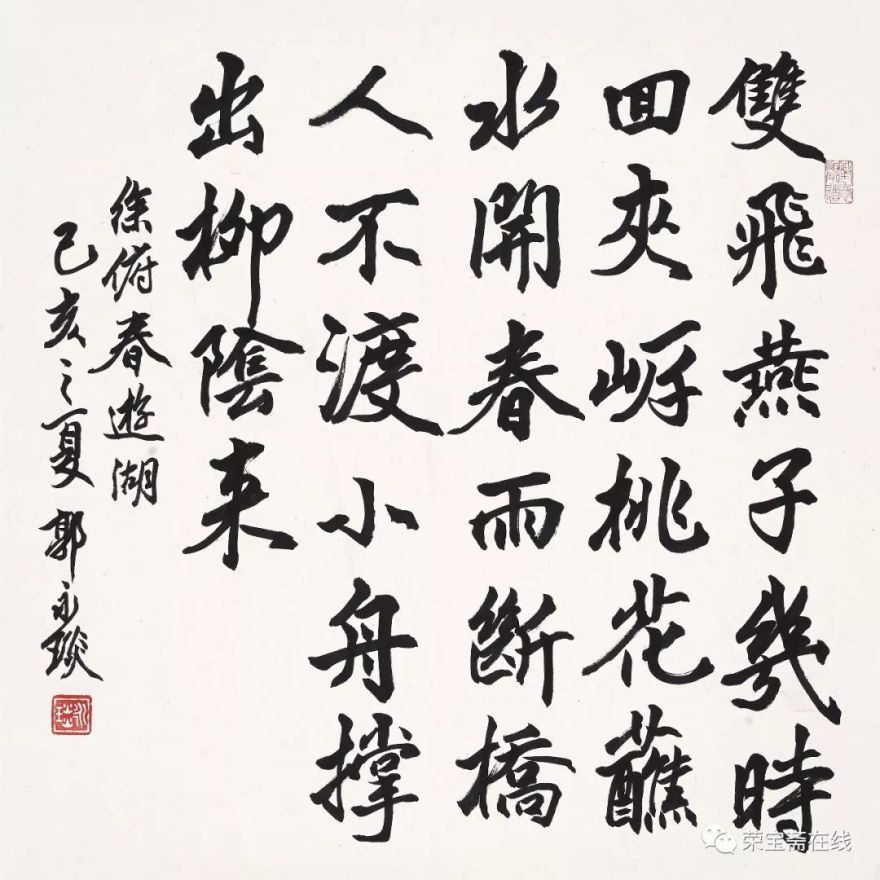 雙飛燕子幾時
回夾岸桃花蘸
水開春雨斷橋
人不渡小舟撑
出柳陰来
徐俯春遊湖
己亥之夏郭永琰
荣宝斋在线